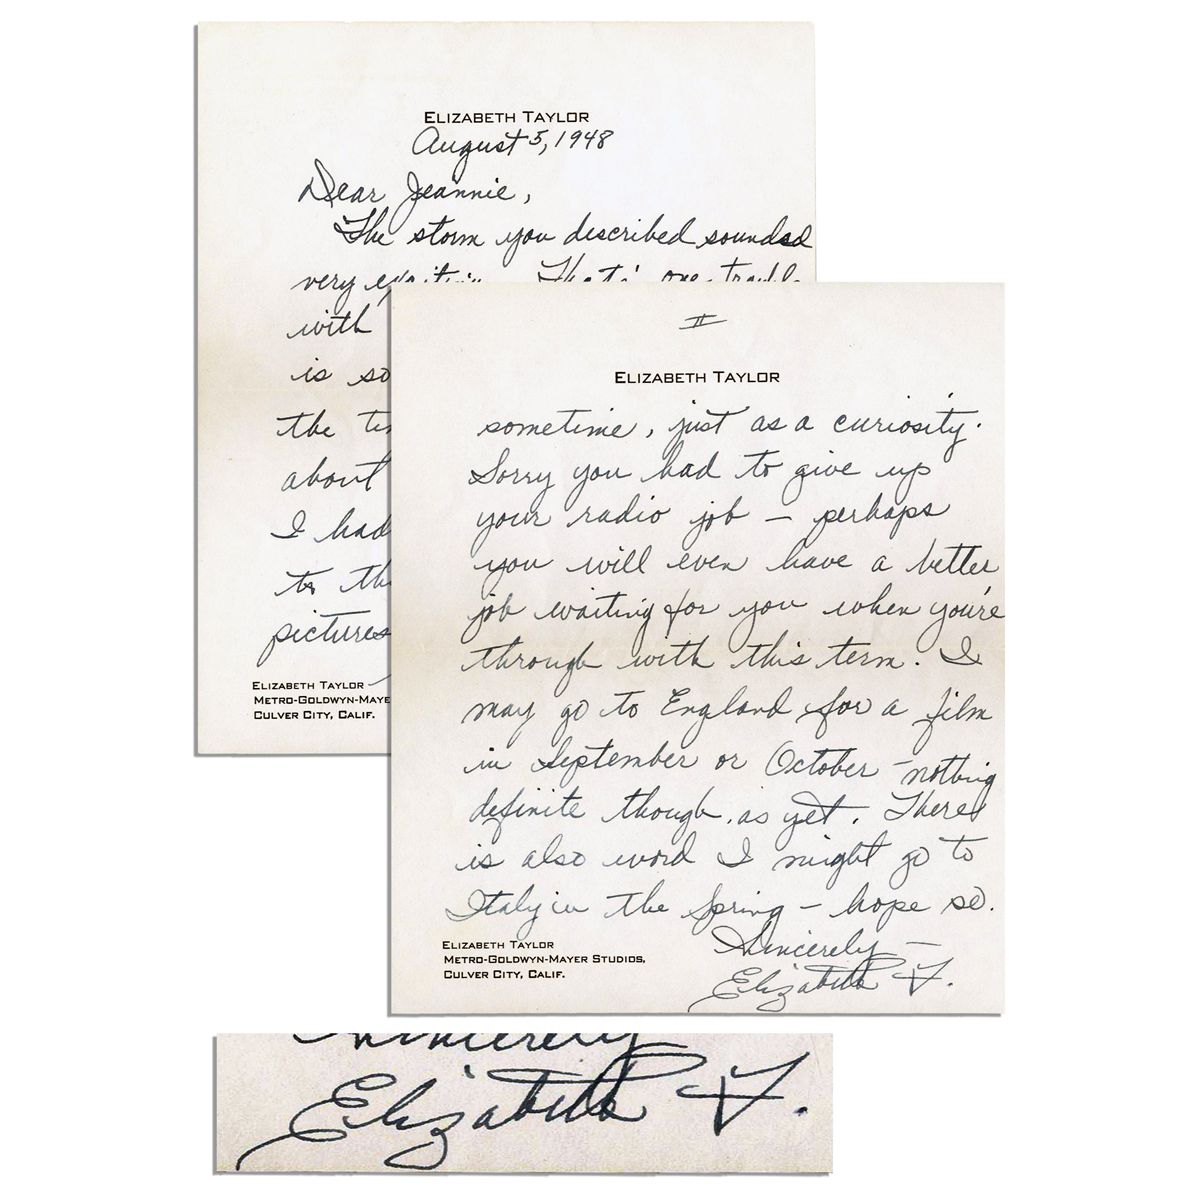 ELIZABETH TAYLOR
August 5, 1948
Dear Jeannie,
The storm you described sounded
very exciting. That's one trouble
with
is so
the
about
I had
to
pictures
ELIZABETH TAYLOR
METRO-GOLDWYN-MAYE
CULVER CITY, CALIF.
II
ELIZABETH TAYLOR
sometime, just as a curiosity.
Sorry you had to give up
your radio job — perhaps
you will even have a better
job waiting for you when you're
through with this term. I
may go to England for a film
in September or October — nothing
definite though, as yet. There
is also word I might go to
Italy in the Spring — hope so.
Sincerely —
Elizabeth T.
ELIZABETH TAYLOR
METRO-GOLDWYN-MAYER STUDIOS,
CULVER CITY, CALIF.
Sincerely
Elizabeth T.